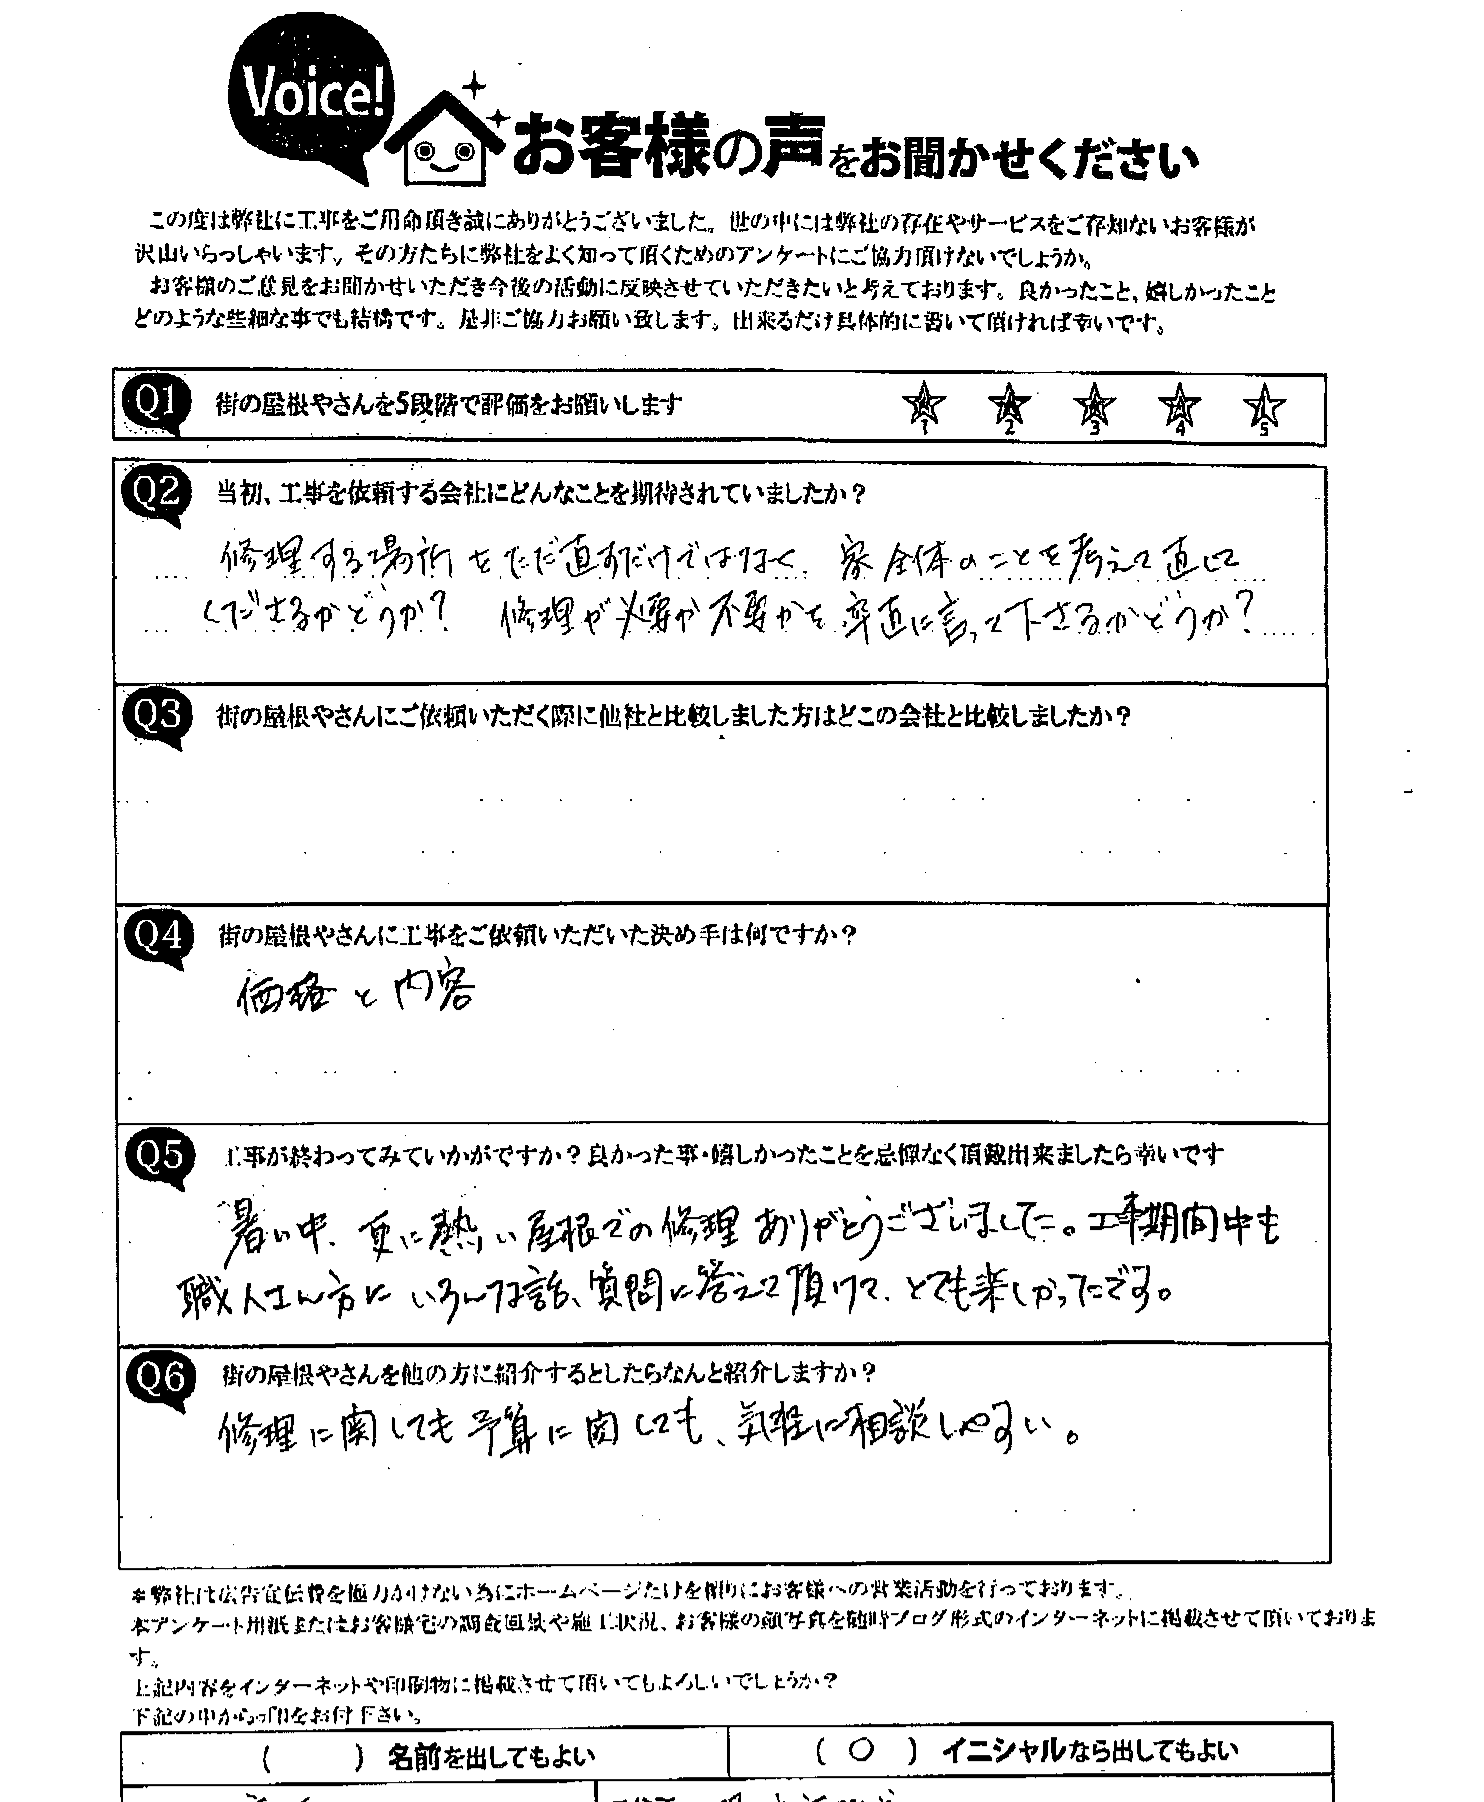 Voice!
お客様の声をお聞かせください
この度は弊社に工事をご用命頂き誠にありがとうございました。世の中には弊社の存在やサービスをご存知ないお客様が
沢山いらっしゃいます。その方たちに弊社をよく知って頂くためのアンケートにご協力頂けないでしょうか。
お客様のご意見をお聞かせいただき今後の活動に反映させていただきたいと考えております。良かったこと、嬉しかったこと
どのような些細な事でも結構です。是非ご協力お願い致します。出来るだけ具体的に書いて頂ければ幸いです。
Q1 街の屋根やさんを5段階で評価をお願いします
1 2 3 4 5
Q2 当初、工事を依頼する会社にどんなことを期待されていましたか？
修理する場所をただ直すだけではなく、家全体のことを考えて直して
くださるかどうか？ 修理が必要か不要かを率直に言って下さるかどうか？
Q3 街の屋根やさんにご依頼いただく際に他社と比較しました方はどこの会社と比較しましたか？
Q4 街の屋根やさんに工事をご依頼いただいた決め手は何ですか？
価格と内容
Q5 工事が終わってみていかがですか？良かった事・嬉しかったことを忌憚なく頂戴出来ましたら幸いです
暑い中、更に熱い屋根での修理ありがとうございました。工事期間中も
職人さん方にいろんな話、質問に答えて頂けて、とても楽しかったです。
Q6 街の屋根やさんを他の方に紹介するとしたらなんと紹介しますか？
修理に関しても予算に関しても、気軽に相談しやすい。
＊弊社は広告宣伝費を極力かけない為にホームページだけを頼りにお客様への営業活動を行っております。
本アンケート用紙またはお客様宅の調査風景や施工状況、お客様の顔写真を随時ブログ形式のインターネットに掲載させて頂いておりま
す。
上記内容をインターネットや印刷物に掲載させて頂いてもよろしいでしょうか？
下記の中から○印をお付下さい。
( ) 名前を出してもよい ( ○ ) イニシャルなら出してもよい